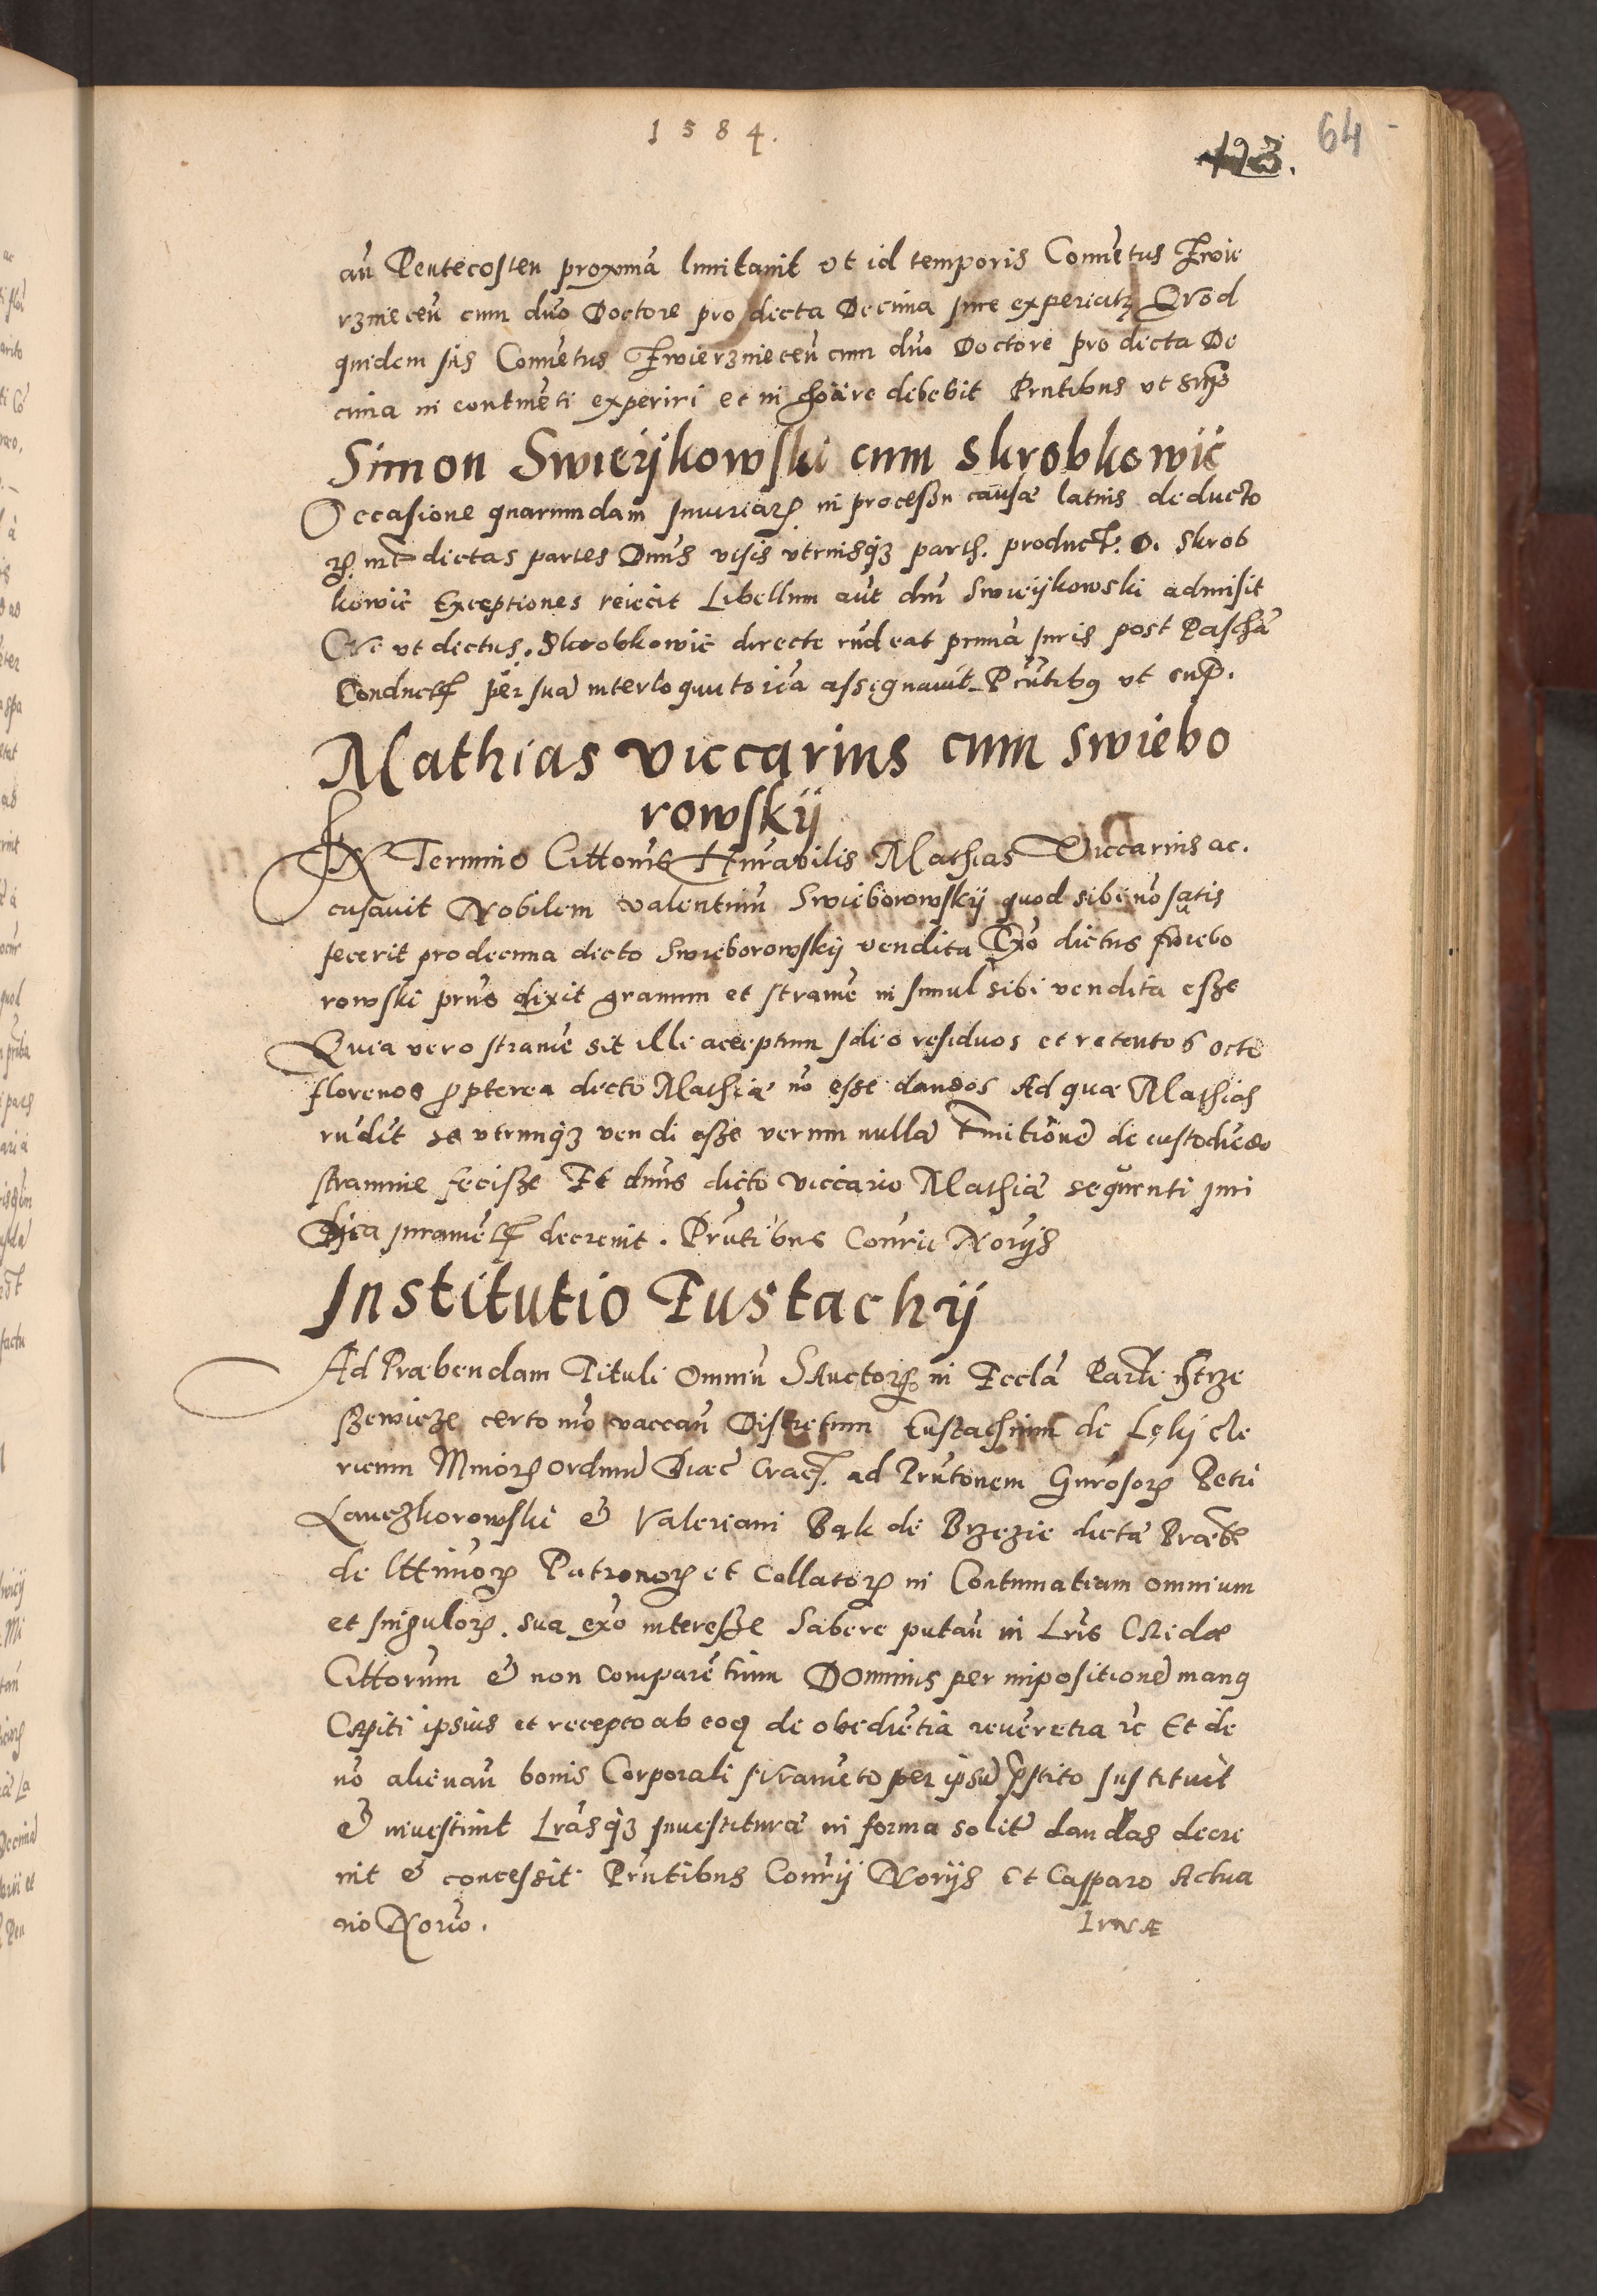 1584.
193.
64
an Pentecosten proximā limitavit ut id temporis Convētus Zwie
rznieceń cum dno Doctore pro dicta Decima jure experiatʒ Qvod
quidem jus Convētus Zwierznieceń cum dno Doctore pro dicta De
cima in continēti experiri et inchoare debebit Prntibus ut supʳ
Simon Swieÿkowski cum Skrobkowic
Occasione quarumdam Iniuriarꝝ in processu causæ latius deducto
rꝝ int̄ dictas partes Dnus visis utriusqʒ part. product. D. Skrob
kowic Exceptiones reiecit Libellum aut dni Swieÿkowski admisit
ut dictus Skrobkowic directe rn̄deat primā Juris post Paschā
Conduct per suā interloquutoriā assignavit Prntibꝰ ut sup.
Mathias Viccarius cum Swiebo
rowskÿ
In Termino Cittonis Hnrabilis Mathias Viccarius ac.
cusavit Nobilem Valentinū Swieborowskÿ quod sibi nō satis
fecerit pro decima dicto Swieborowskÿ vendita Exo dictus Swiebo
rowski prius dixit granum et stramē in simul sibi vendita esse
Quia vero stramē sit illi acceptum Ideo residuos et retentos octo
florenos ꝓpterea dicto Mathiæ nō esse dandos Ad quæ Mathias
rn̄dit se utrumqʒ vendi esse verum nullā mitionē de custodiēdo
stramine fecisse Et dnus dicto viccario Mathiæ sequenti juri
dica juramēt decrevit. Prntibus Conrii Norijs
Institutio Eustachÿ
Ad Præbendam Tituli Omniū SAnctorꝝ in Eccla Parli in Strze
szewicze certo mō vaccan Discretum Eustachium de Lękÿ cle
ricum Minorꝝ ordinū Diæc Crac. ad Prntonem Gnrosorꝝ Petri
Lanczkorowski & Valeriani Bąk de Brzezie dictæ Præbē
de lttimorꝝ Patronorꝝ et Collatorꝝ in Contumatiam omnium
et singulorꝝ sua exō interesse habere putan in Lris
Cittorum & non comparētium DOminus per impositionē manꝰ
CApiti ipsius et recepto ab eoꝗ de obediētia reverētia ꝛc Et de
nō alienan bonis Corporali jVramēto per ipsū p̄stito Instituit
& investivit Lrasqʒ Investituræ in forma solitꝰ dandas decre
vit & concessit Prntibus Conrÿ Norijs Et Casparo Actua
rio Norio.